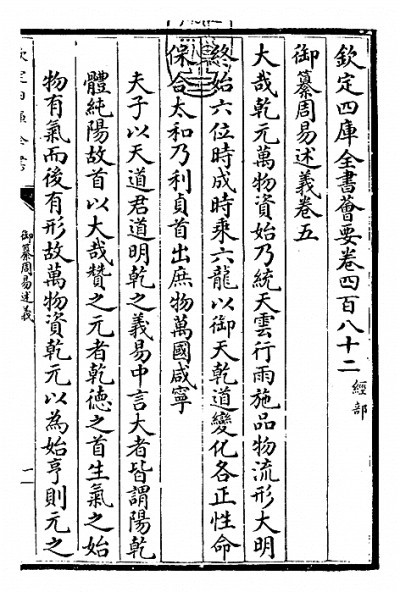 欽定四庫全書薈要卷四百八十二 經部
御纂周易述義卷五
大哉乾元萬物資始乃統天雲行雨施品物流形大明
終始六位時成時乘六龍以御天乾道變化各正性命
保合太和乃利貞首出庶物萬國咸寧
夫子以天道君道明乾之義易中言大者皆謂陽乾
體純陽故首以大哉贊之元者乾德之首生氣之始
物有氣而後有形故萬物資乾元以為始亨則元之
御纂周易述義